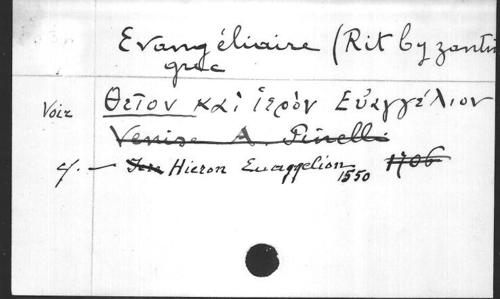 Evangéliaire (Rit byzantin
grec
Voir Θεῖον καὶ ἱερὸν Εὐαγγέλιον
Venise A. Pinelli
cf. — Hieron Euaggelion 1550 1706